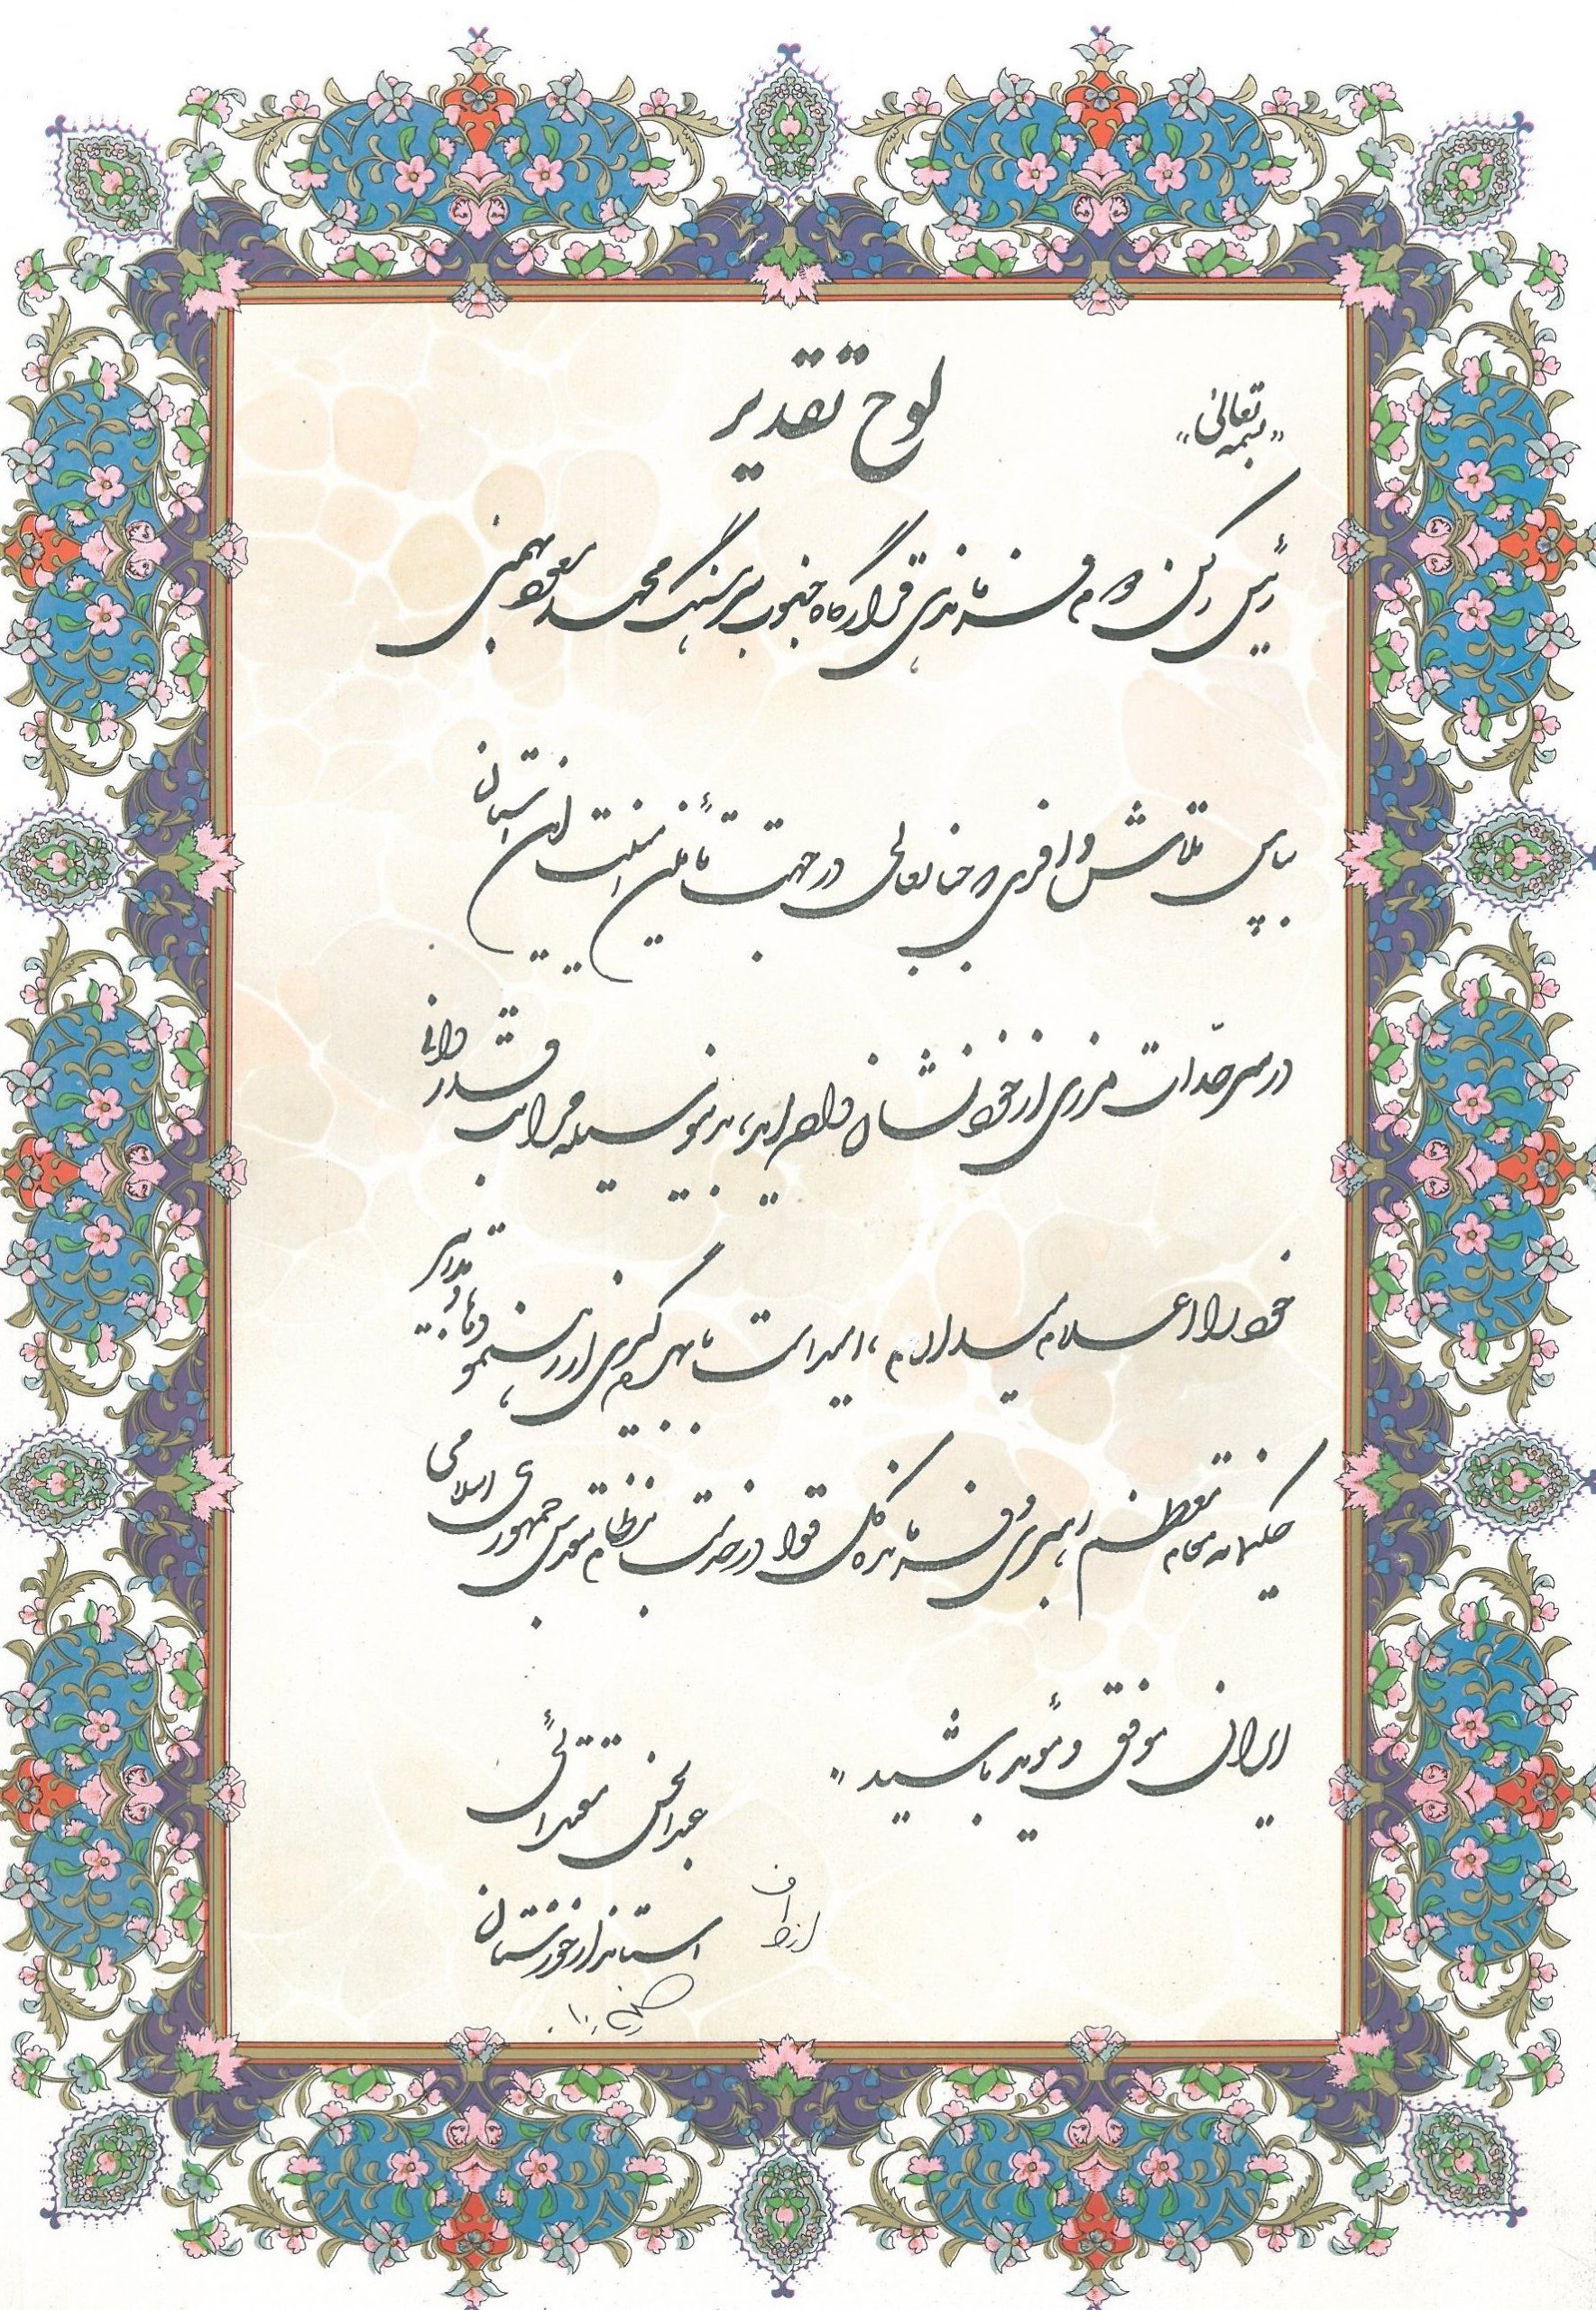 «بسمه تعالی»
لوح تقدیر
رئیس رکن دوم فرماندهی قرارگاه جنوب سرهنگ محمد بهمنی
بپاس تلاش وافری که جنابعالی در جهت تأمین امنیت این استان
در سرحدّات مرزی از خود نشان داده‌اید، بدینوسیله مراتب قدردانی
خود را اعلام میدارم، امید است با بهره‌گیری از رهنمودها و تدابیر
حکیمانه مقام معظم رهبری و فرمانده کل قوا در خدمت به نظام مقدس جمهوری اسلامی
ایران موفق و مؤید باشید
عبدالحسن مقتدائی
استاندار خوزستان
از طرف